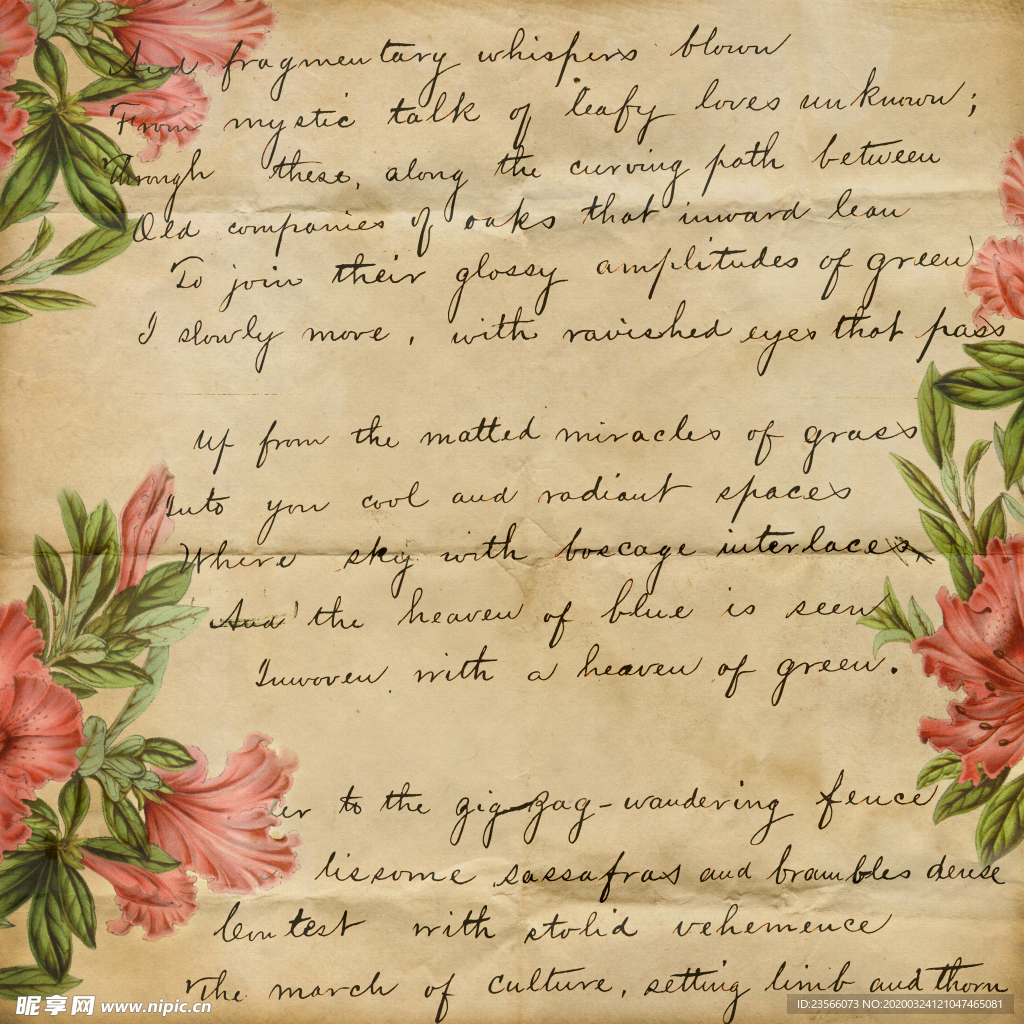 And fragmentary whispers blown
From mystic talk of leafy loves unknown;
Through these, along the curving path between
Old companies of oaks that inward lean
To join their glossy amplitudes of green
I slowly move, with ravished eyes that pass
Up from the matted miracles of grass
Into yon cool and radiant spaces
Where sky with boscage interlaces
And the heaven of blue is seen
Inwoven with a heaven of green.
to the zig-zag-wandering fence
lissome sassafras and brambles dense
Contest with stolid vehemence
The march of culture, setting limb and thorn
昵享网 www.nipic.cn
ID:23566073 NO:20200324121047465081